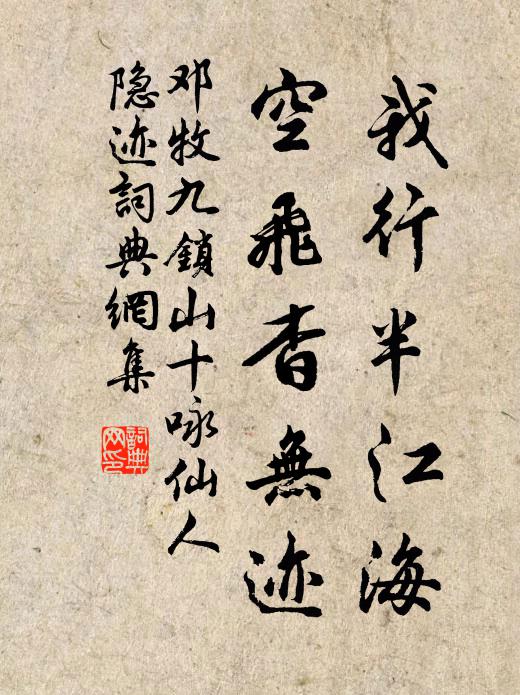 我行半江海
空飛杳無迹
邓牧九鎖山十咏仙人
隐迹詞典網集
詞典
网印